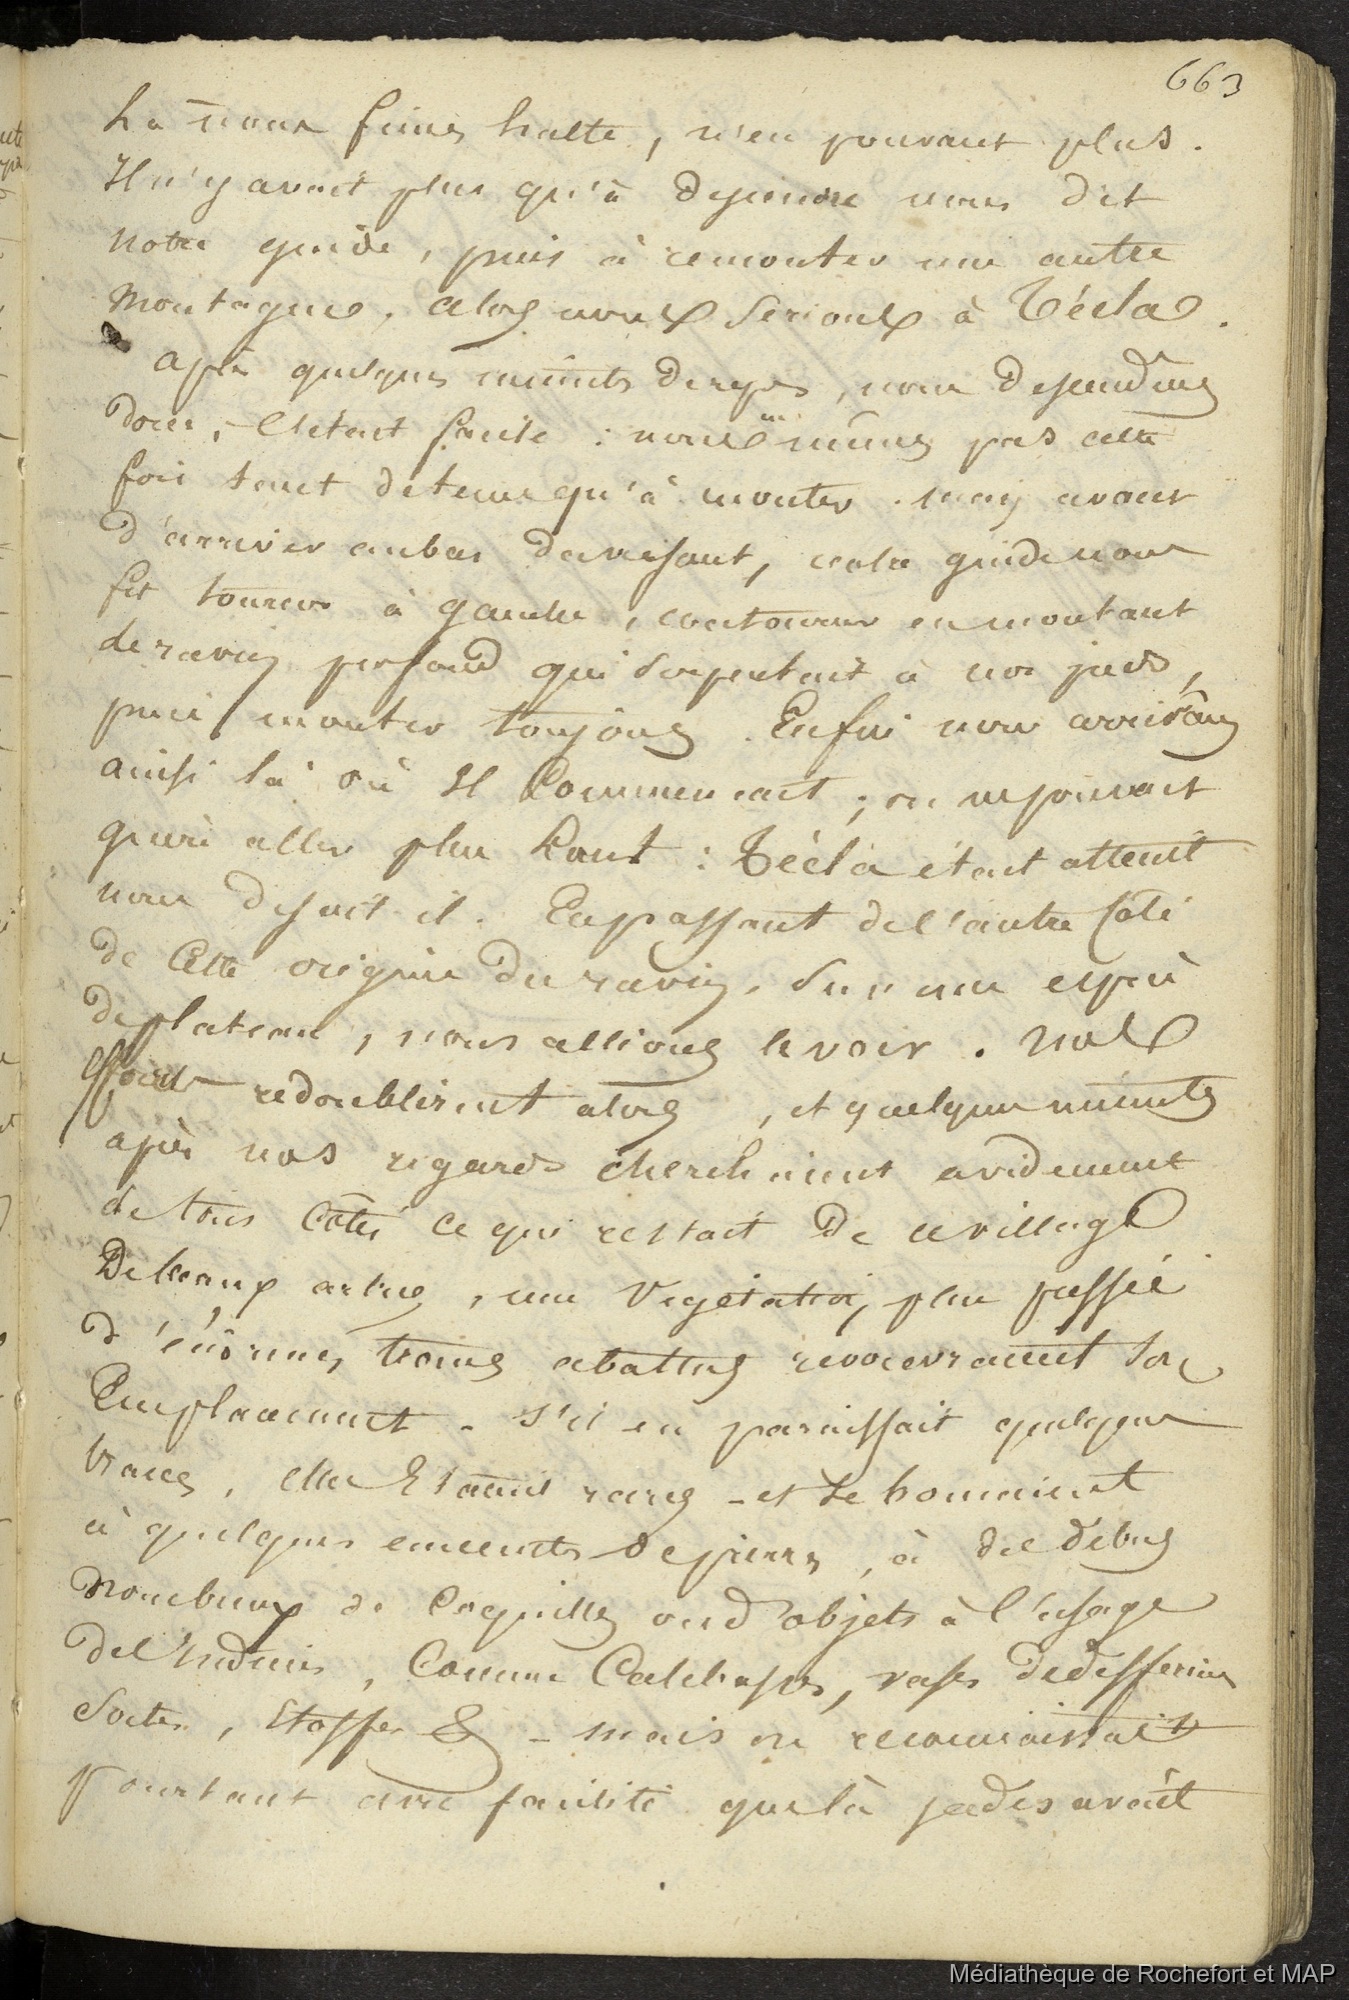 663
Là nous fimes halte, n'en pouvant plus.
Il n'y avait plus qu'à descendre nous dit
notre guide, puis à remonter une autre
montagne, alors nous serions à Técla.
après quelques minuts de repos, nous descendîmes
donc, c'était facile : nous mîmes pas cette
fois tant de tems qu'à monter. mais avant
d'arriver au bas du versant, notre guide nous
fit tourner à gauche, contourner en montant
le ravin profond qui serpentait à nos pieds,
puis monter toujours. Enfin nous arrivâmes
ainsi là où Il commencait ; on ne pouvait
guère aller plus haut : Técla était atteint
nous disait il. En passant de l'autre côté
de cette origine du ravin, sur une espèce
de plateau, nous allions le voir. nos
efforts redoublèrent alors, et quelques minuts
après nos regards cherchaient avidement
de tous côtés ce qui restait de ce village
De beaux arbres, une végétation plus pressée
d'énormes troncs abattus recouvraient son
Emplacement - s'il en paraissait quelques
traces, elles Etaient rares - et se bornaient
à quelques enceintes de pierres, à des débris
nombreux de coquilles ou d'objets à l'usage
de l'Indien, comme Calebasses, vases de différentes
sortes, étoffes & - mais on reconnaissait
pourtant avec facilité que là jadis avait
Médiathèque de Rochefort et MAP